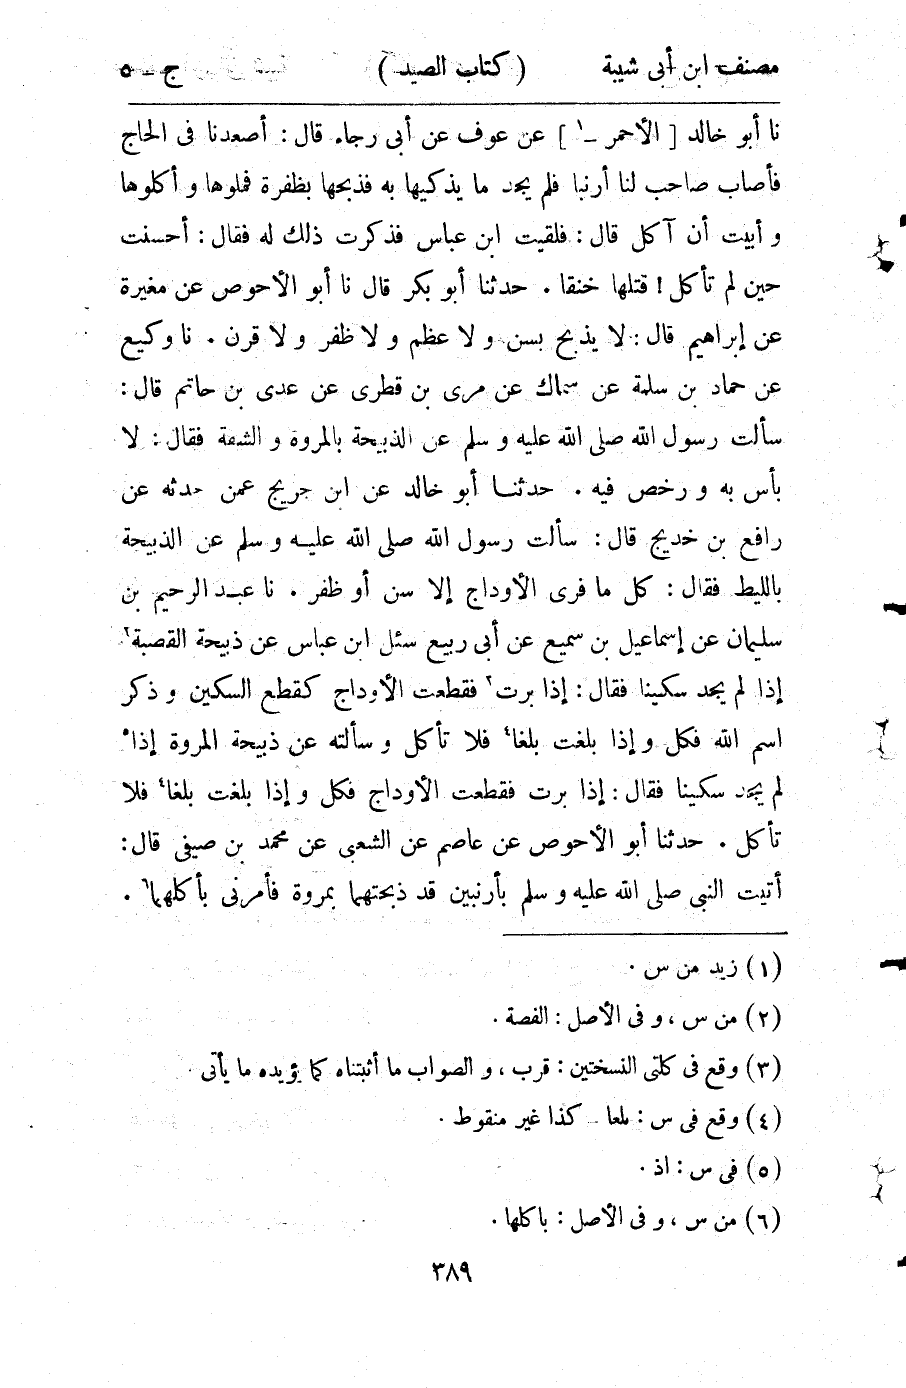 مصنف ابن أبى شيبة ( كتاب الصيد ) ج - ٥
نا أبو خالد [ الأحمر -١ ] عن عوف عن أبى رجاء قال : أصعدنا فى الحاج
فأصاب صاحب لنا أرنبا فلم يجد ما يذكيها به فذبحها بظفرة فملوها و أكلوها
و أبيت أن آكل قال : فلقيت ابن عباس فذكرت ذلك له فقال : أحسنت
حين لم تأكل ! قتلها خنقا . حدثنا أبو بكر قال نا أبو الأحوص عن مغيرة
عن إبراهيم قال : لا يذبح بسن و لا عظم و لا ظفر و لا قرن . نا وكيع
عن حماد بن سلمة عن سماك عن مرى بن قطرى عن عدى بن حاتم قال :
سألت رسول الله صلى الله عليه و سلم عن الذبيحة بالمروة و الشقة فقال : لا
بأس به و رخص فيه . حدثنا أبو خالد عن ابن جريج عمن حدثه عن
رافع بن خديج قال : سألت رسول الله صلى الله عليه و سلم عن الذبيحة
بالليط فقال : كل ما فرى الأوداج إلا سن أو ظفر . نا عبد الرحيم بن
سليمان عن إسماعيل بن سميع عن أبى ربيع سئل ابن عباس عن ذبيحة القصبة٢
إذا لم يجد سكينا فقال : إذا برت٣ فقطعت الأوداج كقطع السكين و ذكر
اسم الله فكل و إذا بلغت بلغا٤ فلا تأكل و سألته عن ذبيحة المروة إذا٥
لم يجد سكينا فقال : إذا برت فقطعت الأوداج فكل و إذا بلغت بلغا٤ فلا
تأكل . حدثنا أبو الأحوص عن عاصم عن الشعبى عن محمد بن صيفى قال :
أتيت النبى صلى الله عليه و سلم بأرنبين قد ذبحتهما بمروة فأمرنى بأكلهما٦ .
(١) زيد من س .
(٢) من س ، و فى الأصل : الفصة .
(٣) وقع فى كلتى النسختين : قرب ، و الصواب ما أثبتناه كما يؤيده ما يأتى .
(٤) وقع فى س : ملعا - كذا غير منقوط .
(٥) فى س : اذ .
(٦) من س ، و فى الأصل : باكلها .
٣٨٩